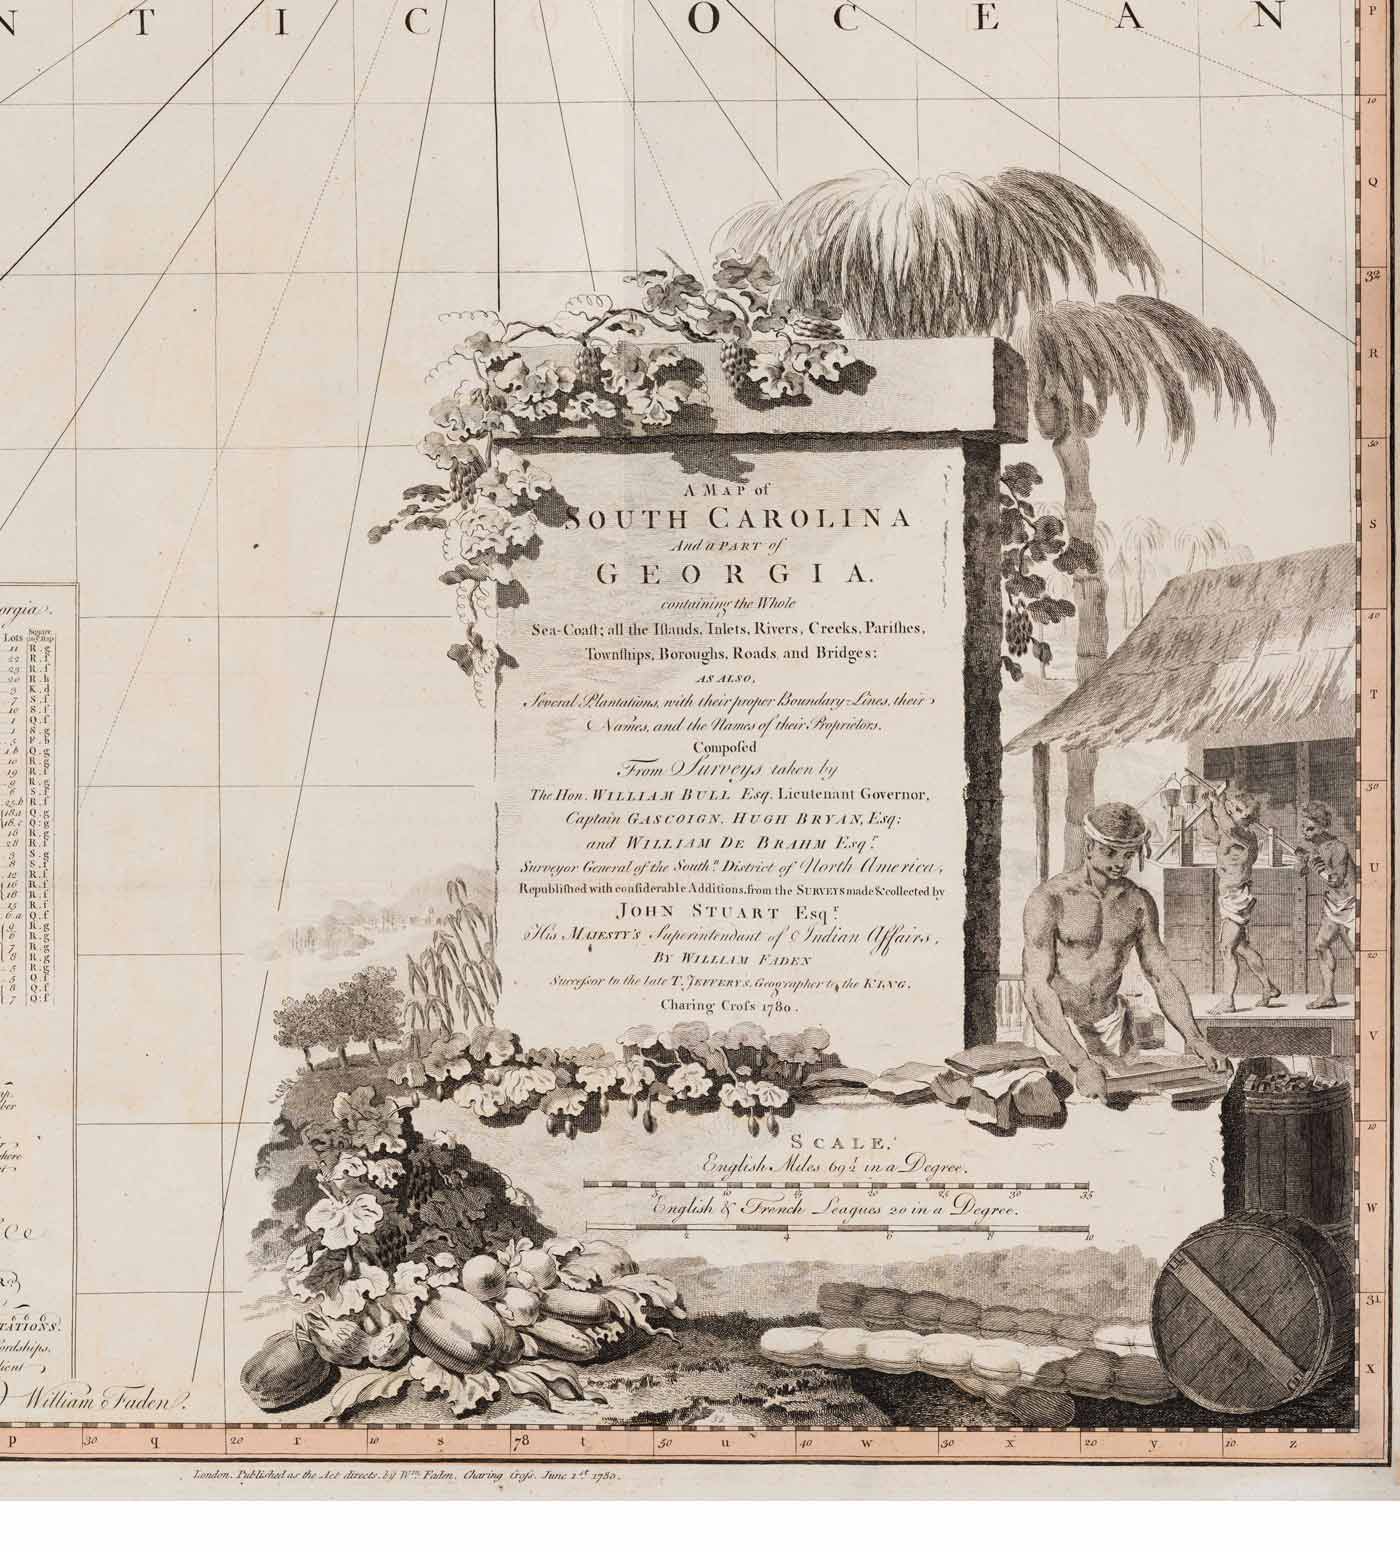 N T I C O C E A N
A MAP of
SOUTH CAROLINA
And a PART of
GEORGIA.
containing the Whole
Sea-Coaſt; all the Iſlands, Inlets, Rivers, Creeks, Pariſhes,
Townſhips, Boroughs, Roads, and Bridges:
AS ALSO,
Several Plantations, with their proper Boundary-Lines, their
Names, and the Names of their Proprietors.
Compoſed
From Surveys taken by
The Hon. WILLIAM BULL Esq. Lieutenant Governor,
Captain GASCOIGN, HUGH BRYAN, Esq;
and WILLIAM DE BRAHM Esqr.
Surveyor General of the Southn. District of North America,
Republiſhed with conſiderable Additions, from the SURVEYS made & collected by
JOHN STUART Esqr.
His MAJESTY'S Superintendant of Indian Affairs,
BY WILLIAM FADEN
Succeſsor to the late T. JEFFERYS, Geographer to the KING.
Charing Croſs 1780.
SCALE.
English Miles 69½ in a Degree.
5 10 15 20 25 30 35
English & French Leagues 20 in a Degree.
2 4 6 8 10
orgia.
Lots
11 R.g
22 R.f
TATIONS.
ordships.
William Faden.
P
10
Q
32
R
50
S
40
T
30
U
20
V
10
W
31
X
p 30 q 20 r 10 s 78 t 50 u 40 w 30 x 20 y 10 z
London. Published as the Act directs, by Wm. Faden, Charing Croſs, June 1st 1780.